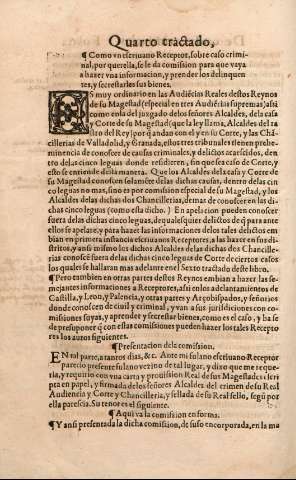 Quarto tractado,
¶ Como vn escriuano Receptor, sobre caso crimi-
nal, por querella, se le da comission para que vaya
a hazer vna informacion, y prender los delinquen
tes, y secrestarles sus bienes.
ES muy ordinario en las Audiẽcias Reales destos Reynos
de su Magestad (especial en tres Audiẽcias supremas) assi
como en la del juzgado de los señores Alcaldes, de la casa
y Corte de su Magestad (que como esta dicho, Alcaldes del ra
stro del Rey) por q̃ andan con el y en su Corte, y las Chã-
cillerias de Valladolid, y Granada, estos tres tribunales tienen prehe-
minencia de conoscer de causas criminales, y delictos acaescidos, den
tro de las cinco leguas donde residieren, sin que sea caso de Corte, y
esto se entiende de esta manera. Que los Alcaldes de la casa y Corte de
su Magestad conoscen solamẽte de las dichas causas, dentro de las cin
co leguas no mas, sino es por comission especial de su Magestad, y los
Alcaldes de las dichas dos Chancillerias, demas de conoscer en las di-
chas cinco leguas (como es dicho.) En apelacion pueden conoscer
fuera de las dichas cinco leguas, de qualquier delicto de q̃ para ante
ellos se apelare, y para hazer las informaciones de los tales delictos em
bian en primera instancia escriuanos Receptores, a las hazer en sus di-
strictos, y ansi mismo los dichos Alcaldes de las dichas dos Chancille-
rias conoscẽ fuera de las dichas cinco leguas de Corte de ciertos casos
los quales se hallaran mas adelante en el Sexto tractado deste libro.
¶ Pero tambien en otras partes destos Reynos embian a hazer las se-
mejantes informaciones a Receptores, assi en los adelantamientos de
Castilla, y Leon, y Palencia, y otras partes y Arçobispados, y señorios
donde conoscen de ciuil y criminal, y van a sus jurisdiciones con co-
missiones suyas, a aprender y secrestar bienes, como es caso, y ha se
de presuponer q̃ con estas comissiones pueden hazer los tales Recepto
res los autos siguientes.
¶ Presentacion de la comission.
EN tal parte, a tantos dias, &c. Ante mi fulano escriuano Receptor
parecio presente fulano vezino de tal lugar, y dixo que me reque-
ria, y requirio con vna carta y prouision Real de sus Magestades escri
pta en papel, y firmada de los señores Alcaldes del crimen de su Real
Audiencia y Corte y Chancilleria, y sellada de su Real sello, segũ por
ella parescia. Su tenor es el siguiente.
¶ Aqui va la comission en forma.
¶ Y ansi presentada la dicha comission, de suso encorporada, en la ma